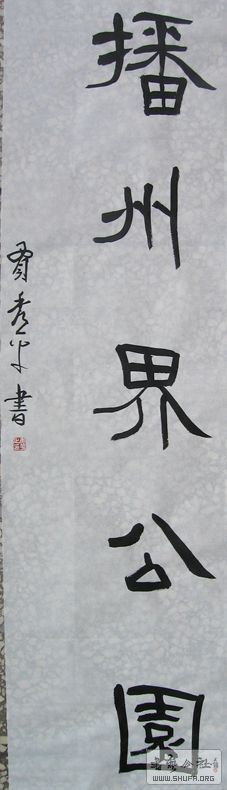 播州界公园
秀平書
書法公社
WWW.SHUFA.ORG